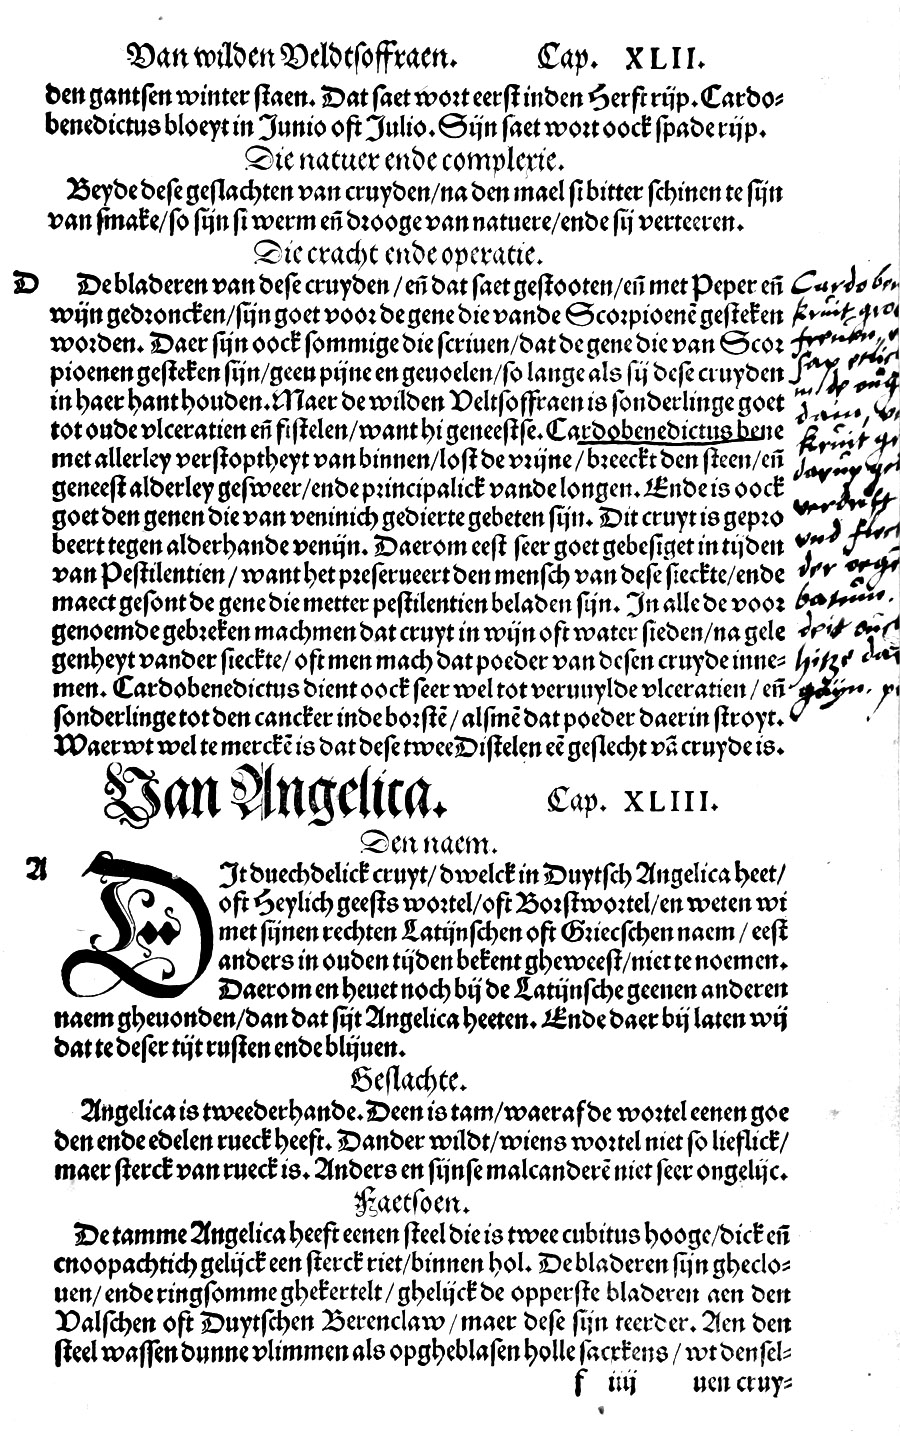 Van wilden Veldtsoffraen. Cap. XLII.
den gantsen winter staen. Dat saet wort eerst inden Herfst rijp. Cardo-
benedictus bloeyt in Junio oft Julio. Sijn saet wort oock spade rijp.
Die natuer ende complexie.
Beyde dese geslachten van cruyden/na den mael si bitter schinen te sijn
van smake/so sijn si werm eñ drooge van natuere/ende sij verteeren.
Die cracht ende operatie.
D De bladeren van dese cruyden/eñ dat saet gestooten/eñ met Peper eñ
wijn gedroncken/sijn goet voor de gene die vande Scorpioenē gesteken
worden. Daer sijn oock sommige die scriuen/dat de gene die van Scor
pioenen gesteken sijn/geen pijne en geuoelen/so lange als sij dese cruyden
in haer hant houden. Maer de wilden Veltsoffraen is sonderlinge goet
tot oude vlceratien eñ fistelen/want hi geneestse. Cardobenedictus bene
met allerley verstoptheyt van binnen/lost de vrijne/breeckt den steen/eñ
geneest alderley gesweer/ende principalick vande longen. Ende is oock
goet den genen die van veninich gedierte gebeten sijn. Dit cruyt is gepro
beert tegen alderhande venijn. Daerom eest seer goet gebesiget in tijden
van Pestilentien/want het preserueert den mensch van dese sieckte/ende
maect gesont de gene die metter pestilentien beladen sijn. In alle de voor
genoemde gebreken machmen dat cruyt in wijn oft water sieden/na gele
genheyt vander sieckte/oft men mach dat poeder van desen cruyde inne-
men. Cardobenedictus dient oock seer wel tot veruuylde vlceratien/eñ
sonderlinge tot den cancker inde borstē/alsmē dat poeder daerin stroyt.
Waer wt wel te merckē is dat dese twee Distelen eē geslecht vā cruyde is.
Cardoben
kruit gro
verdrifft
und
der
hitze
Van Angelica. Cap. XLIII.
Den naem.
A DIt duechdelick cruyt/dwelck in Duytsch Angelica heet/
oft Heylich geests wortel/oft Borstwortel/en weten wi
met sijnen rechten Latijnschen oft Griecschen naem/eest
anders in ouden tijden bekent gheweest/niet te noemen.
Daerom en heuet noch bij de Latijnsche geenen anderen
naem gheuonden/dan dat sijt Angelica heeten. Ende daer bij laten wij
dat te deser tijt rusten ende blijuen.
Geslachte.
Angelica is tweederhande. Deen is tam/waeraf de wortel eenen goe
den ende edelen rueck heeft. Dander wildt/wiens wortel niet so lieflick/
maer sterck van rueck is. Anders en sijnse malcanderē niet seer ongelijc.
Faetsoen.
De tamme Angelica heeft eenen steel die is twee cubitus hooge/dick eñ
cnoopachtich gelijck een sterck riet/binnen hol. De bladeren sijn gheclo-
uen/ende ringsomme ghekertelt/ghelijck de opperste bladeren aen den
Valschen oft Duytschen Berenclaw/maer dese sijn teerder. Aen den
steel wassen dunne vlimmen als opgheblasen holle sacxkens/wt den sel-
f iiij uen cruy-